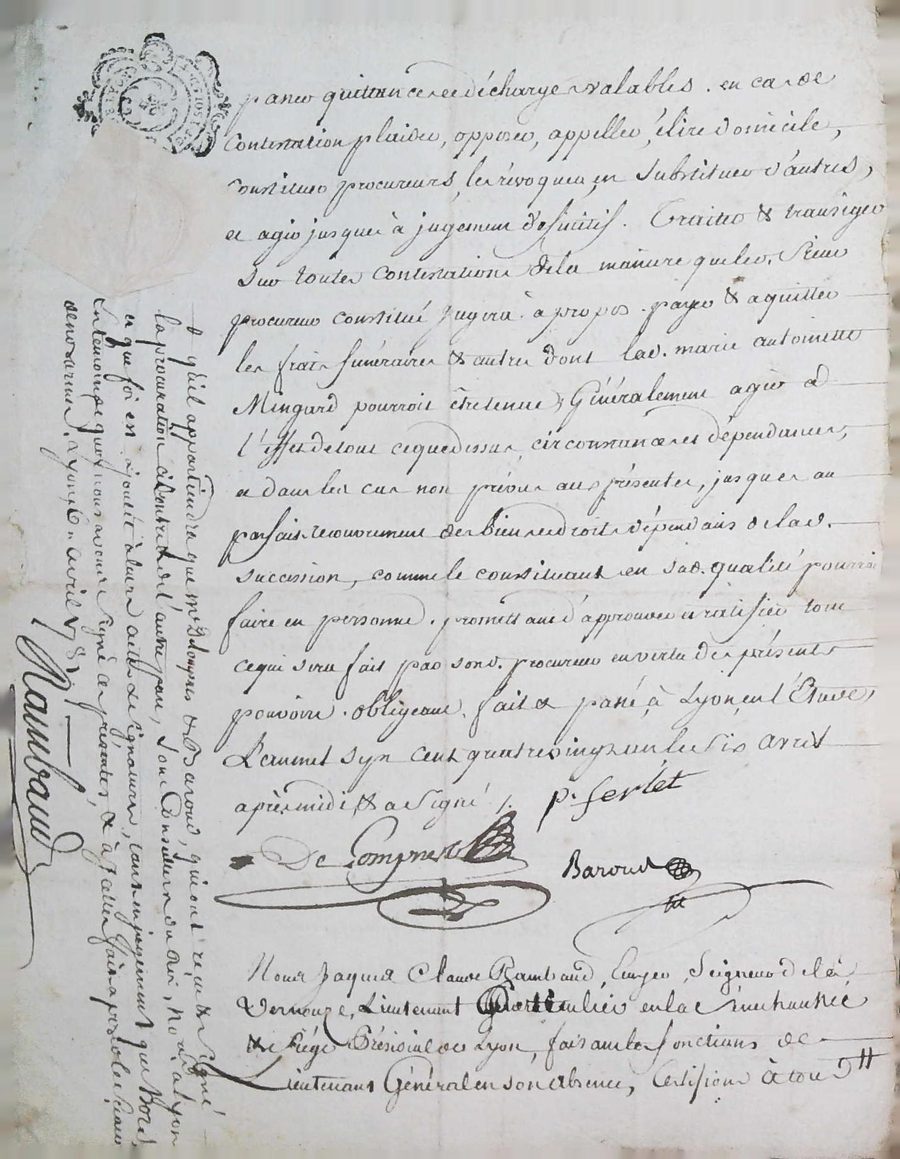 passer quittances et décharges valables. en cas de
Contestation plaider, opposer, appeller, élire domicile,
constituer procureurs, les révoquer, en substituer d'autres,
et agir jusques à jugement définitif. Traiter & transiger
sur toutes contestations de la maniere que led. Sieur
procureur constitué jugera à propos. payer & aquitter
les frais funéraires & autres dont lad. marie antoinette
Mingard pourroit être tenue, Généralement agir à
l'effet de tout ce que dessus, circonstances et dépendances,
et dans les cas non prévus aux présentes, jusques au
parfait recouvrement des biens et droits dépendans de lad.
succession, comme le constituant en sad. qualité pourroit
faire en personne. promettant d'approuver et ratifier tout
ce qui sera fait par sond. procureur en vertu des présents
pouvoirs. obligeant. fait et passé à Lyon, en l'Étude,
L'an mil sept cent quatre vingt un le six avril
après midi & a signé
p. ferlet
De Compries
Baroud
Nous Jaques Claude Rambaud, Ecuyer, Seigneur de la
Vernouze, Lieutenant particulier en la Sénéchaussée
& Siège Présidial de Lyon, faisant les fonctions de
Lieutenant Général en son absence, Certifions à tous
qu'il appartiendra que mes Decompries & Baroud, qui ont reçu & signé
la procuration ci contre & de l'autre part, sont Conseillers du Roi, Nores à Lyon
et que foi est ajoutée à leurs actes & signatures, tant en jugement que hors,
En temoin de quoi nous avons signé ces présentes, & à y celles fait apposer le sceau
de nos armes. à Lyon, le avril 1781
Rambaud